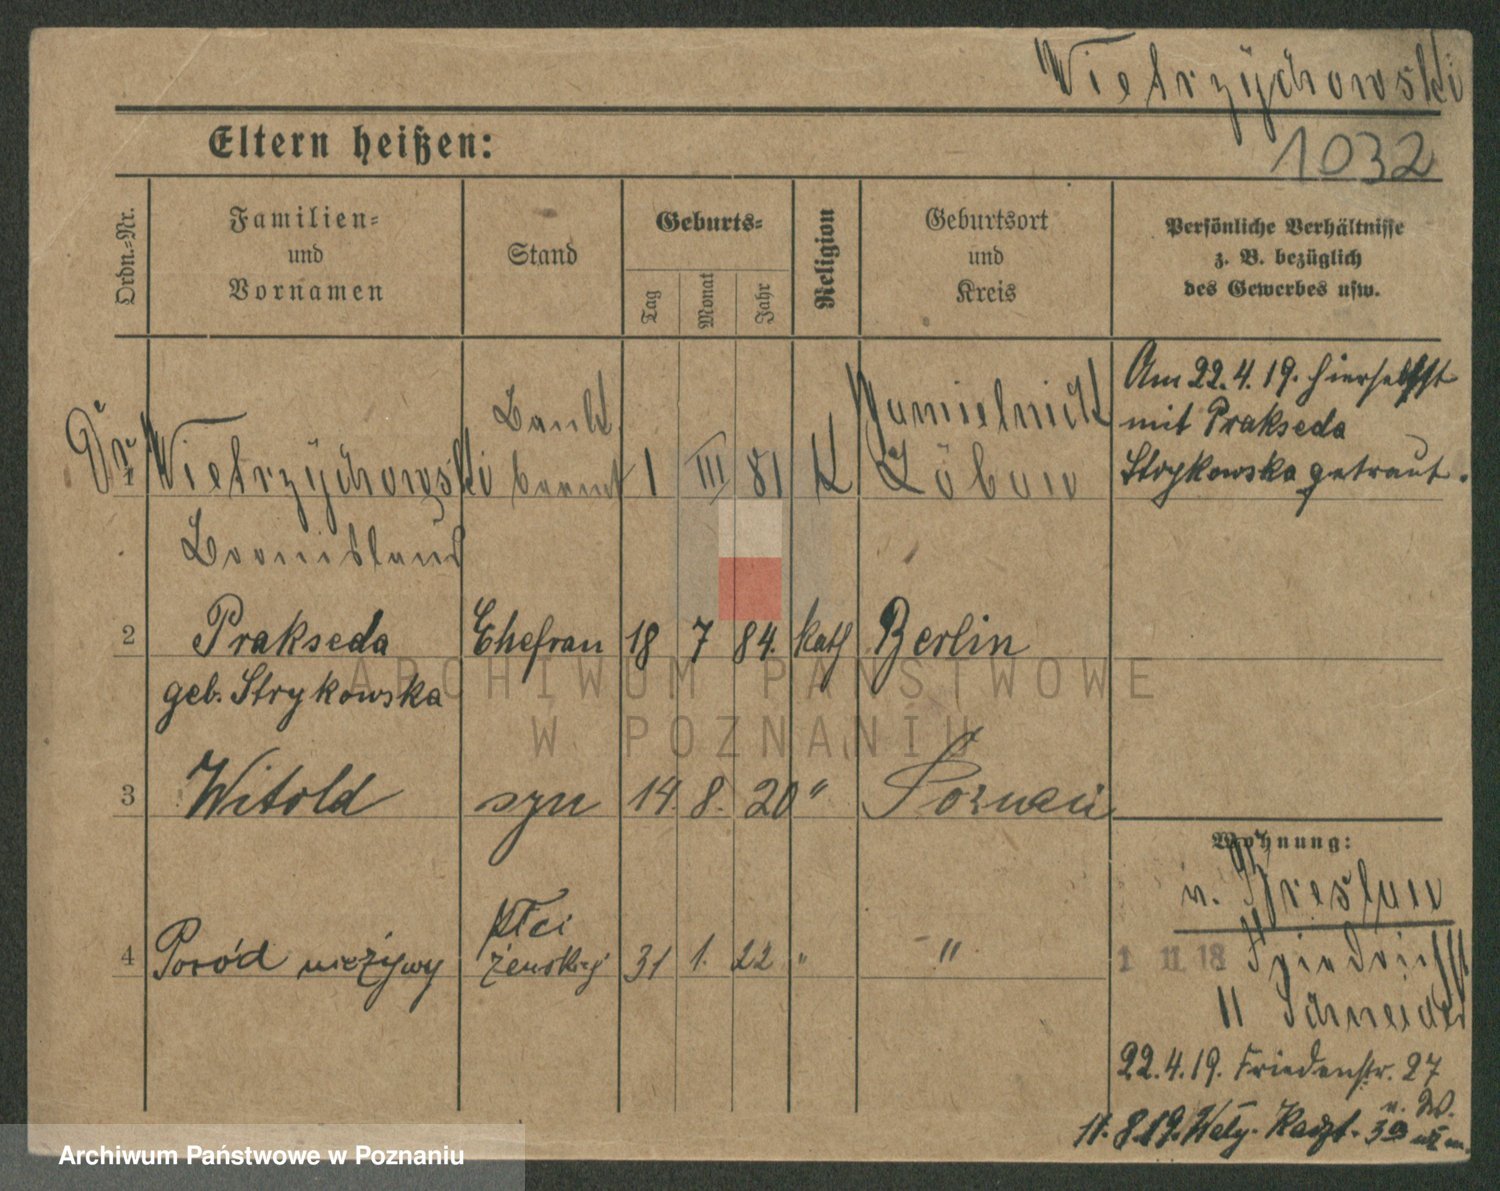 Wietrzychowski
Eltern heißen:
1032
Ordn.-Nr.
Familien-
und
Vornamen
Stand
Geburts-
Tag
Monat
Jahr
Religion
Geburtsort
und
Kreis
Persönliche Verhältnisse
z. B. bezüglich
des Gewerbes usw.
Dr
1 Wietrzychowski Bank beamt 1 III 81 K Löbau
Am 22.4.19. hierselbst
mit Prakseda
Strykowska getraut.
2 Prakseda Ehefrau 18 7 84. kath Berlin
geb. Strykowska
ARCHIWUM PAŃSTWOWE
W POZNANIU
3 Witold syn 14. 8. 20 " Poznań
4 Poród nieżywy płci żeńskiej 31 1. 22 " "
Wohnung:
v. Breslau
1 11 18 Friedrichstr
11 Schneider
22.4.19. Friedenstr. 27
11.8.19.
Archiwum Państwowe w Poznaniu